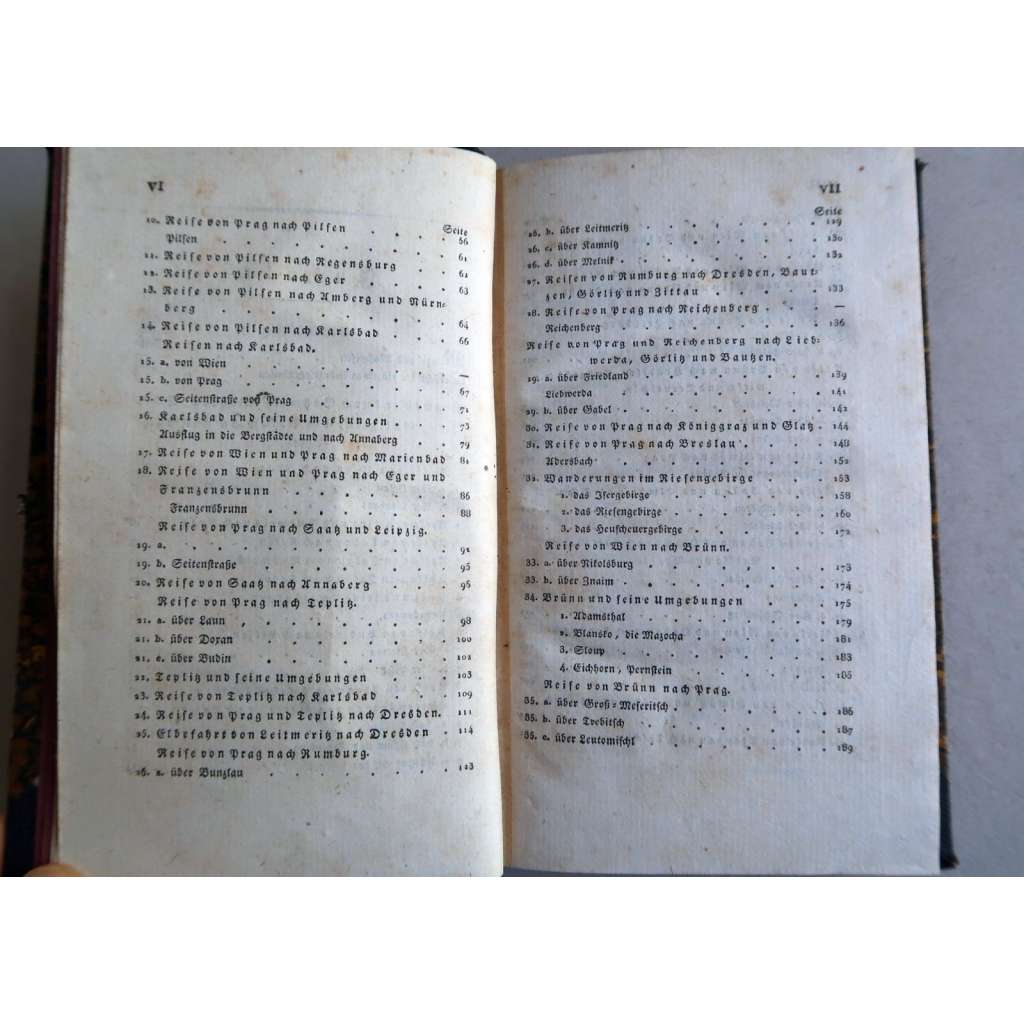 VI
Seite
10. Reise von Prag nach Pilsen
Pilsen . . . . . . . 56
11. Reise von Pilsen nach Regensburg . . 61
12. Reise von Pilsen nach Eger . . . 62
13. Reise von Pilsen nach Amberg und Nürn-
berg . . . . . . . 63
14. Reise von Pilsen nach Karlsbad . . 64
Reisen nach Karlsbad. 66
15. a. von Wien . . . . . . —
15. b. von Prag . . . . . . 67
15. c. Seitenstraße von Prag . . . . 71
16. Karlsbad und seine Umgebungen . . 73
Ausflug in die Bergstädte und nach Annaberg . 79
17. Reise von Wien und Prag nach Marienbad 81
18. Reise von Wien und Prag nach Eger und
Franzensbrunn . . . . . 86
Franzensbrunn . . . . . 88
Reise von Prag nach Saatz und Leipzig.
19. a. . . . . . . . 91
19. b. Seitenstraße . . . . . 95
20. Reise von Saatz nach Annaberg . . 96
Reise von Prag nach Teplitz.
21. a. über Laun . . . . . . 98
21. b. über Doxan . . . . . 100
21. c. über Budin . . . . . 102
22. Teplitz und seine Umgebungen . . 103
23. Reise von Teplitz nach Karlsbad . . 109
24. Reise von Prag und Teplitz nach Dresden. 111
25. Elbefahrt von Leitmeritz nach Dresden . 114
Reise von Prag nach Rumburg.
26. a. über Bunzlau . . . . . 123
VII
Seite
26. b. über Leitmeritz . . . . . 129
26. c. über Kamnitz . . . . . 130
26. d. über Melnik . . . . . 132
27. Reisen von Rumburg nach Dresden, Baut-
zen, Görlitz und Zittau . . . . 133
28. Reise von Prag nach Reichenberg . . —
Reichenberg . . . . . . 136
Reise von Prag und Reichenberg nach Lieb-
werda, Görlitz und Bautzen.
29. a. über Friedland . . . . . 139
Liebwerda . . . . . . 141
29. b. über Gabel . . . . . 142
30. Reise von Prag nach Königgraz und Glatz . 144
31. Reise von Prag nach Breslau . . . 148
Adersbach . . . . . . 152
32. Wanderungen im Riesengebirge . . 153
1. das Isergebirge . . . . . 158
2. das Riesengebirge . . . . 160
3. das Heuscheuergebirge . . . . 172
Reise von Wien nach Brünn.
33. a. über Nikolsburg . . . . . 173
33. b. über Znaim . . . . . 174
34. Brünn und seine Umgebungen . . 175
1. Adamsthal . . . . . 179
2. Blansko, die Mazocha . . . . 181
3. Sloup . . . . . . 183
4. Eichhorn, Pernstein . . . . 185
Reise von Brünn nach Prag.
35. a. über Groß-Meseritsch . . . . 186
35. b. über Trebitsch . . . . . 187
35. c. über Leutomischl . . . . 189